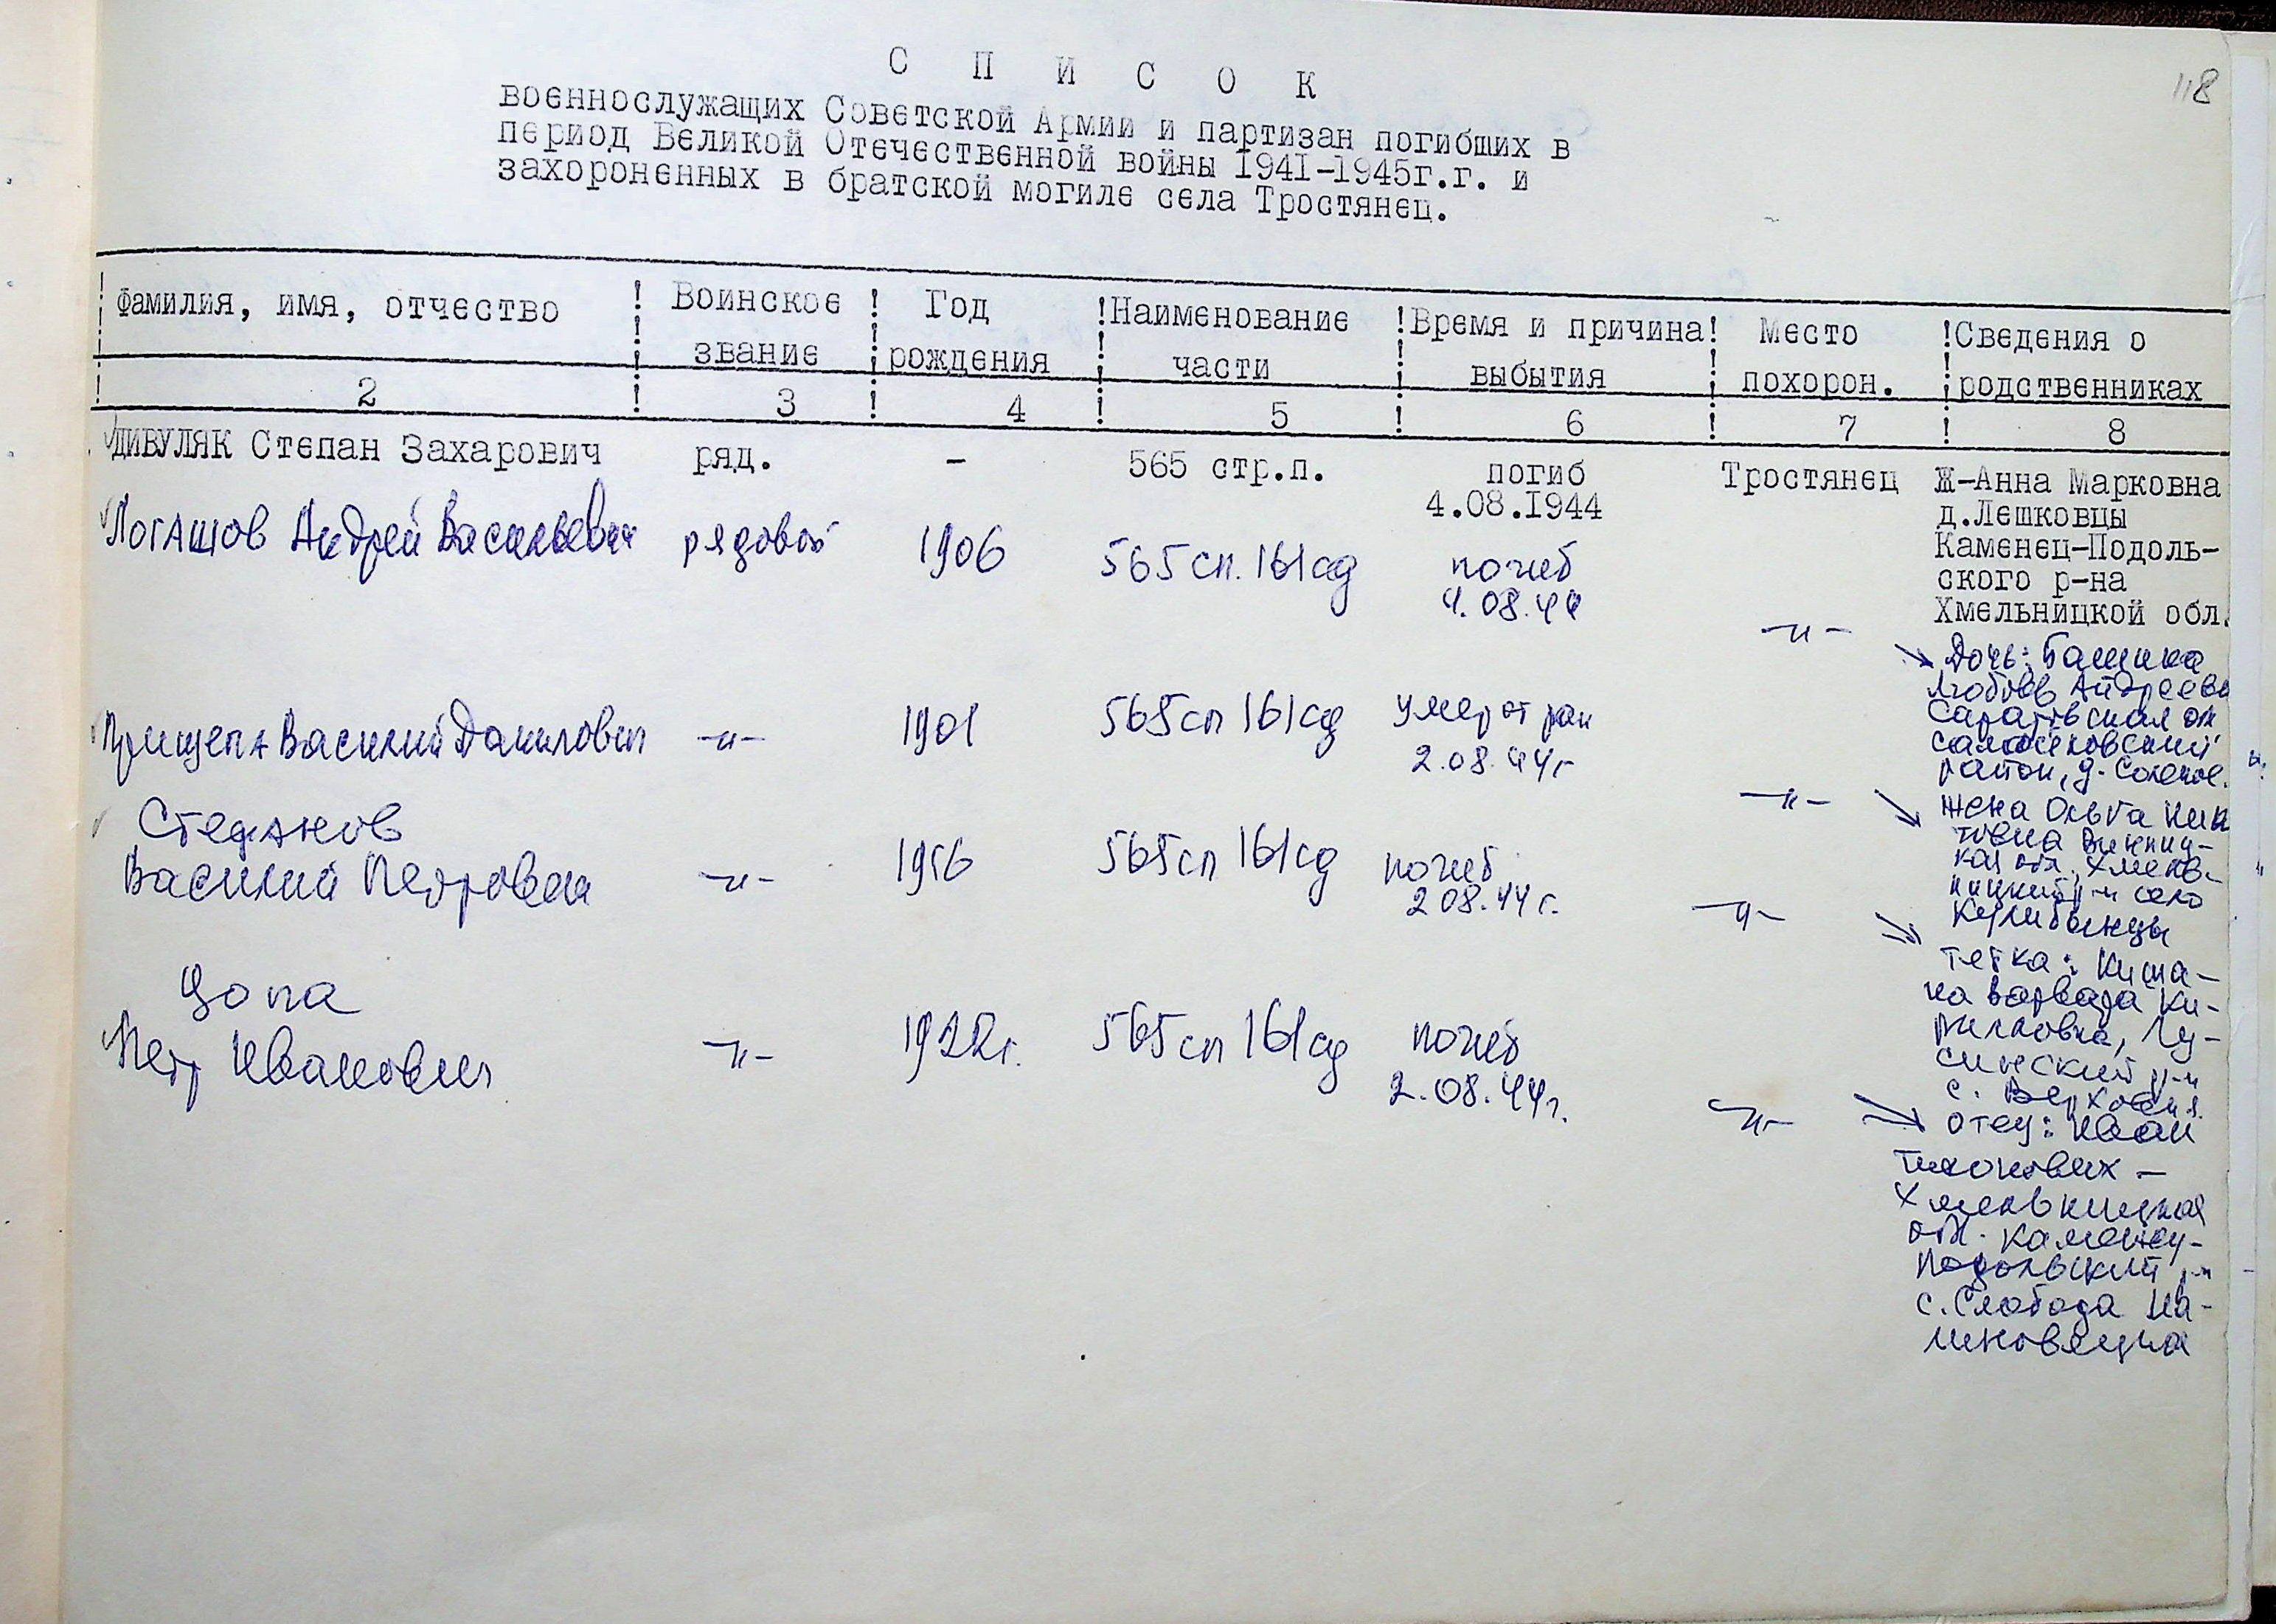 118
С П И С О К
военнослужащих Советской Армии и партизан погибших в
период Великой Отечественной войны 1941-1945г.г. и
захороненных в братской могиле села Тростянец.
Фамилия, имя, отчество ! Воинское звание ! Год рождения ! Наименование части ! Время и причина выбытия ! Место похорон. ! Сведения о родственниках
2 ! 3 ! 4 ! 5 ! 6 ! 7 ! 8
ДИВУЛЯК Степан Захарович ряд. - 565 стр.п. погиб Тростянец Ж-Анна Марковна
4.08.1944 д.Лешковцы
Каменец-Подоль-
ского р-на
Хмельницкой обл.
Логашов Андрей Васильевич рядовой 1906 565 сп. 161 сд погиб
4.08.44
-"- Дочь:
Любовь Андреевн
Саратовская об
район, д.
Прищепа Василий Данилович -"- 1901 565 сп 161 сд умер от ран
2.08.44г
-"- жена Ольга Ник
товна Винниц-
кая обл. Хмель-
ницкий р-н село
Кулибынцы
Стефанов
Василий Петрович -"- 565 сп 161 сд погиб
2 08.44 г.
-"- тетка: Кища-
на Варвара Ки-
рилловна, Лу-
синский р-н
с.
Цопа
Петр Иванович -"- 1922г. 565 сп 161 сд погиб
2.08.44г.
-"- отец: Иван
Тихонович -
Хмельницкая
обл. Каменец-
Подольский р-н
с. Слобода Ка-
линовецка